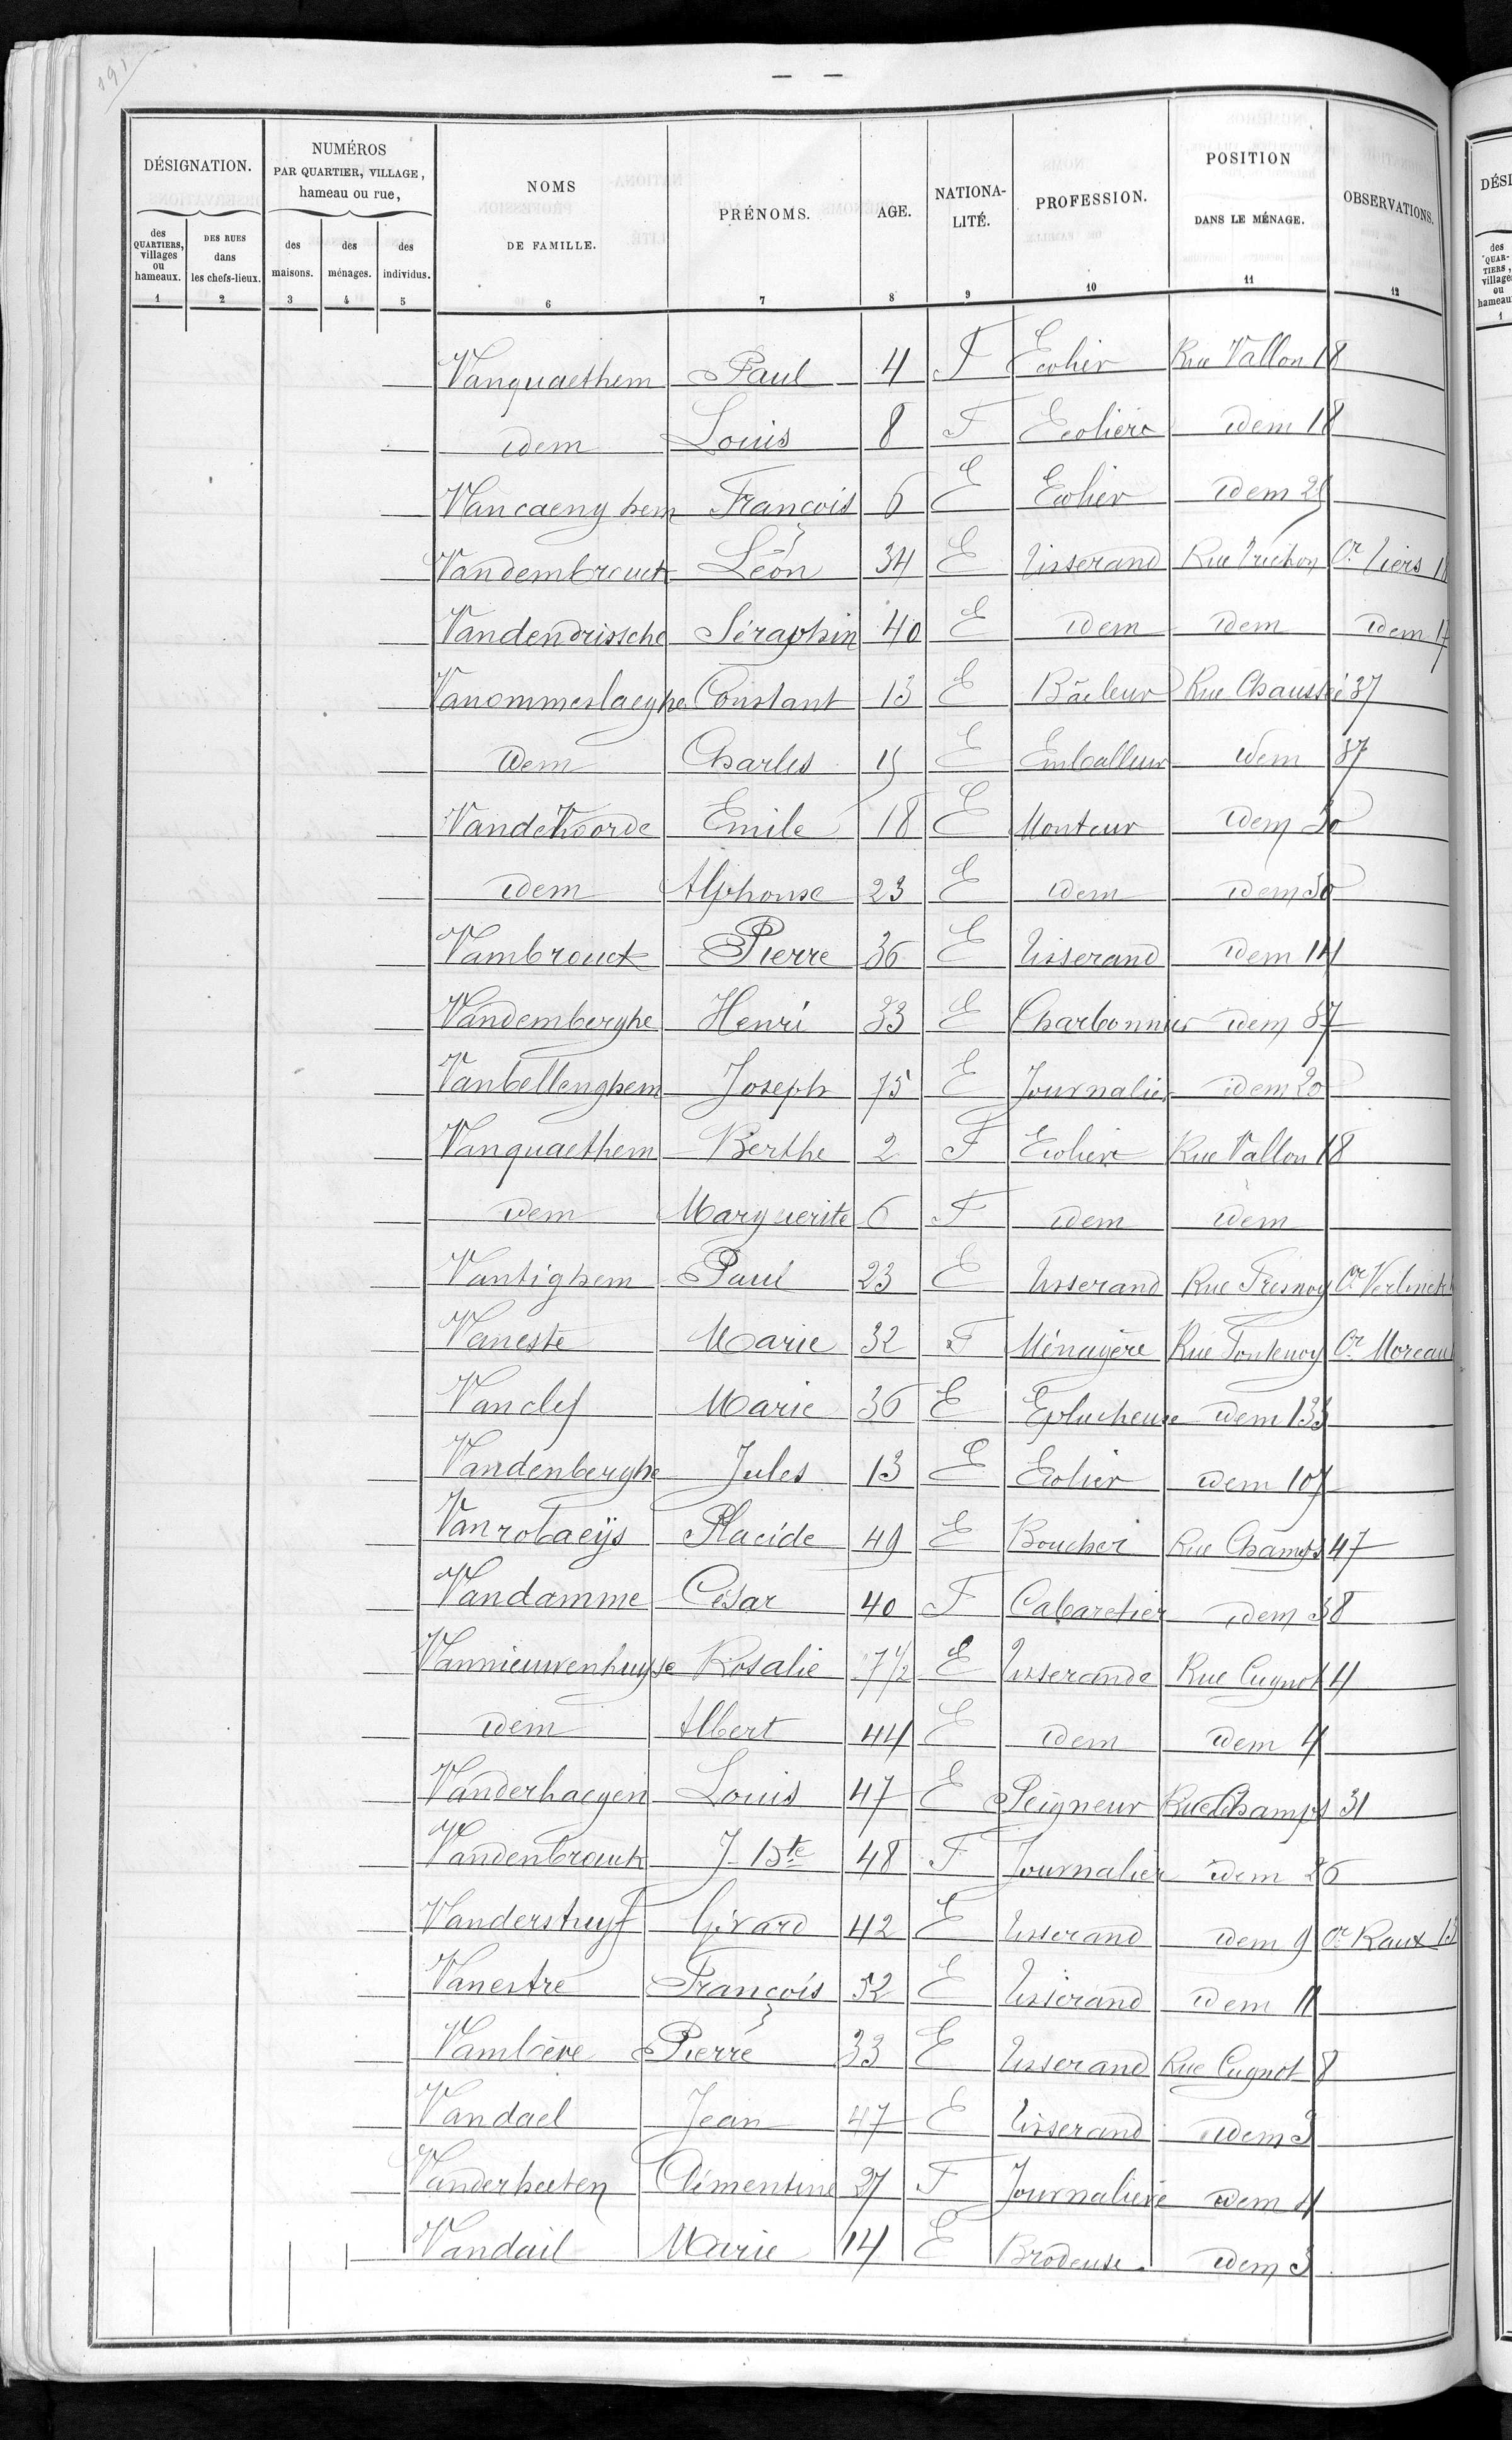 191
— —
DÉSIGNATION.
NUMÉROS
PAR QUARTIER, VILLAGE,
hameau ou rue,
NOMS
DE FAMILLE.
PRÉNOMS.
AGE.
NATIONA-
LITÉ.
PROFESSION.
POSITION
DANS LE MÉNAGE.
OBSERVATIONS.
des
QUARTIERS,
villages
ou
hameaux.
DES RUES
dans
les chefs-lieux.
des
maisons.
des
ménages.
des
individus.
1 2 3 4 5 6 7 8 9 10 11 12
Vanquaethem Paul 4 F Ecolier Rue Vallon 18
idem Louis 8 F Ecolière idem 18
Vancaenghem François 6 E Ecolier idem
Vandembrouck Léon 34 E Tisserand Rue Trichon Cr Tiers 18
Vandendrissche Séraphin 40 E idem idem idem 17
Vanommeslaeghe Constant 13 E Bâcleur Rue Chaussée 37
idem Charles 15 E Emballeur idem 37
Vandevoorde Emile 18 E Monteur idem 30
idem Alphonse 23 E idem idem 30
Vambrouck Pierre 36 E Tisserand idem 14
Vandemberghe Henri 33 E Charbonnier idem 37
Vanbellenghem Joseph 75 E Journalier idem 20
Vanquaethem Berthe 2 F Ecolière Rue Vallon 18
idem Marguerite 6 F idem idem
Vantighem Paul 23 E Tisserand Rue Fresnoy Cr Verlinck
Vaneste Marie 32 F Ménagère Rue Fontenoy Cr Moreau
Vanclef Marie 36 E Eplucheuse idem 133
Vandenberghe Jules 13 E Ecolier idem 107
Vanrobaeys Placide 49 E Boucher Rue Champs 47
Vandamme César 40 F Cabaretier idem 38
Vannieuwenhuyse Rosalie E Tisserande Rue Cugnot 4
idem Albert 44 E idem idem 4
Vanderhaegen Louis 47 E Peigneur Rue Champs 31
Vandenbrouck J-Bte 48 F Journalier idem 26
Vanderstuyf Gérard 42 E Tisserand idem 9 Cr Raux 13
Vanestre François 52 E Tisserand idem 11
Vambère Pierre 33 E Tisserand Rue Cugnot 8
Vandael Jean 47 E Tisserand idem 3
Vanderhaeten Clémentine 27 F Journalière idem 4
Vandail Marie 14 E Brodeuse idem 3
DÉSI
des
QUAR-
TIERS,
villages
ou
hameaux
1